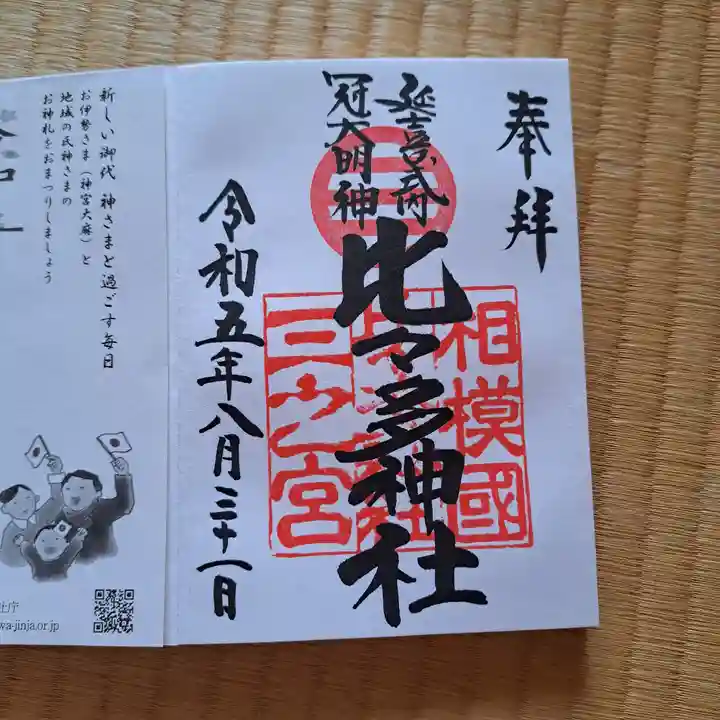 奉拝
延喜式内
冠大明神
比々多神社
相模國
三之宮
令和五年八月三十一日
新しい御代 神さまと過ごす毎日
お伊勢さま（神宮大麻）と
地域の氏神さまの
お神札をおまつりしましょう
社庁
wa-jinja.or.jp